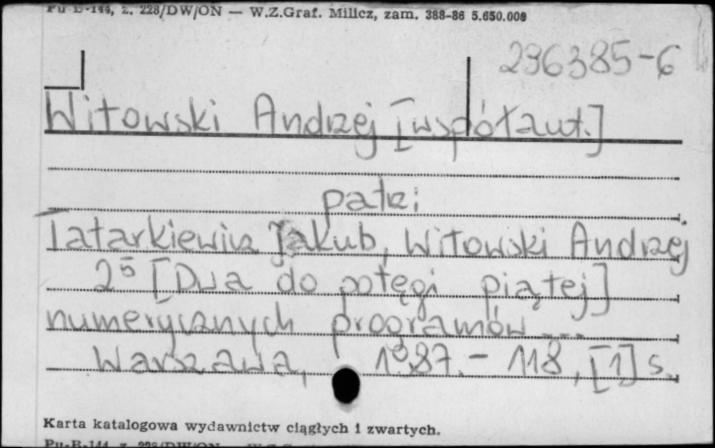 Pu-B-144, z. 228/DW/ON — W.Z.Graf. Milicz, zam. 388-86 5.650.000
296385-6
Witowski Andrzej [współaut.]
patrz:
Tatarkiewicz Jakub, Witowski Andrzej
2⁵ [Dwa do potęgi piątej]
numerycznych programów ...
Warszawa, 1987. - 118, [1] s.
Karta katalogowa wydawnictw ciągłych i zwartych.
Pu-B-144, z. 228/DW/ON — W.Z.Graf.